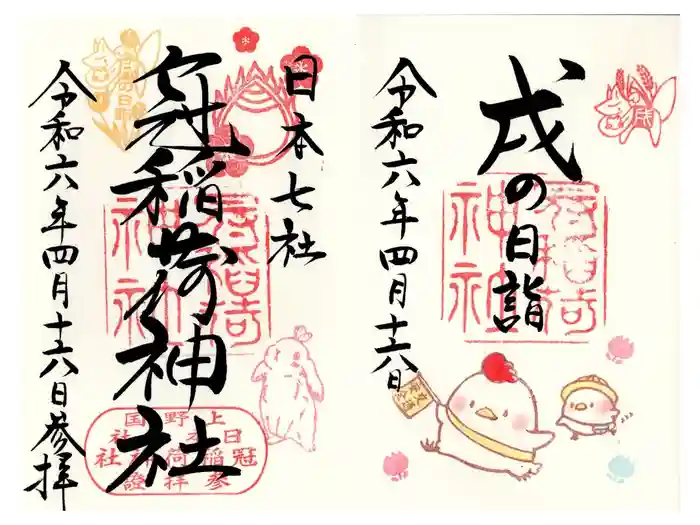 日本七社
冠稲荷神社
令和六年四月十六日参拝
上野国
日本七社
冠稲荷神社
参拝證
戌の日詣
令和六年四月十六日
冠稲荷
神社